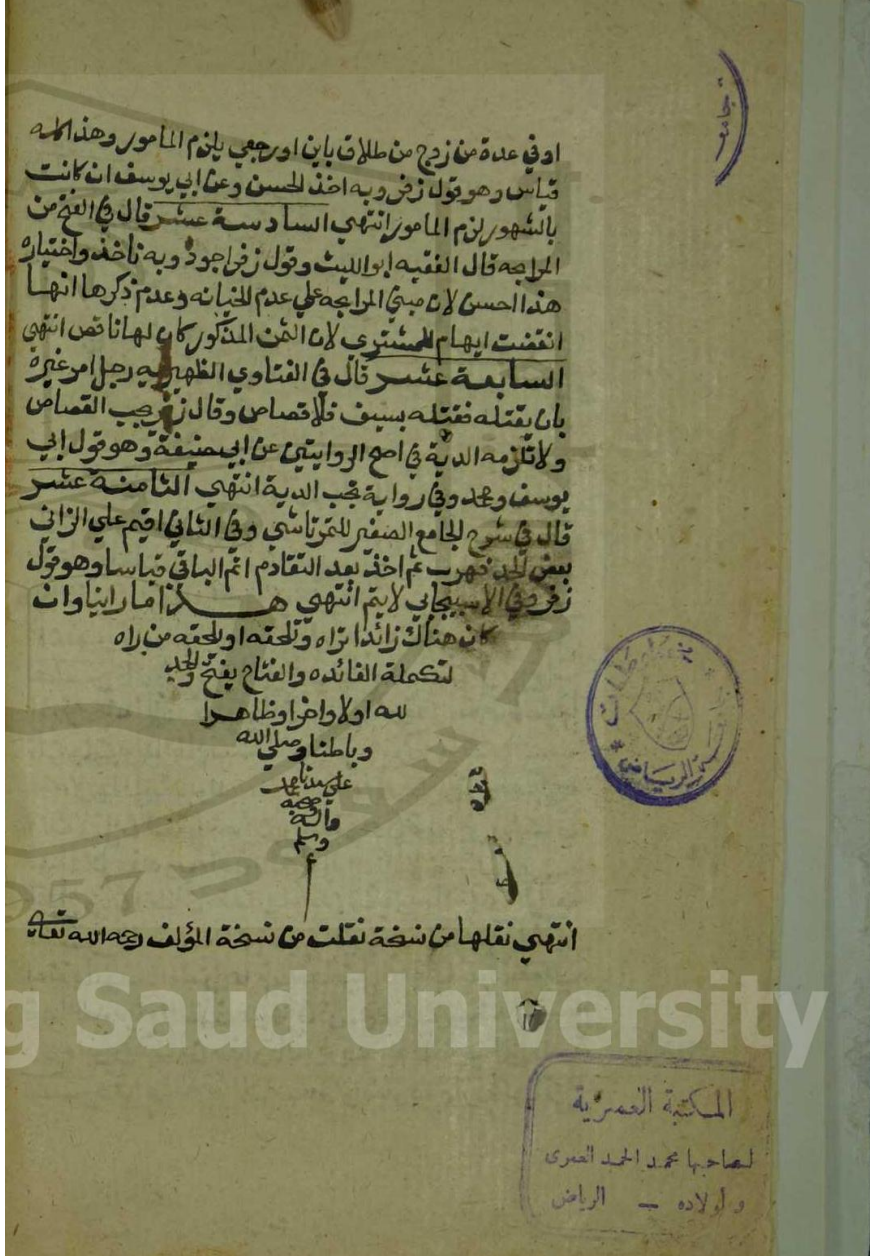 او في عدة من زوج من طلاق باين او رجعي يلزم المامور وهذا كله
قياس وهو قول زفر وبه اخذ الحسن وعن ابي يوسف ان كانت
بالشهور لزم المامور انتهي السادسة عشر قال في الفتح من
المرابحه قال الفقيه ابو الليث وقول زفر اجود وبه ناخذ واختياره
هذا احسن لان مبني المرابحه علي عدم الخيانه وعدم ذكرها انها
انتقضت ايهام للمشتري لان الثمن المذكور كان لها ناقص انتهي
السابعة عشر قال في الفتاوي الظهيريه رجل امر غيره
بان يقتله فقتله بسيف فلا قصاص وقال زفر يجب القصاص
ولا تلزمه الدية في اصح الروايتين عن ابي حنيفة وهو قول ابي
يوسف ومحمد وفي رواية تجب الدية انتهي الثامنة عشر
قال في شرح الجامع الصغير للتمرتاشي وفي الثاني اقيم علي الزاني
بعض الحد فهرب ثم اخذ بعد التقادم اتم الباقي قياسا وهو قول
زفر وفي الاسبيجابي لايتم انتهي هذا ما راينا وان
كان هناك زائدا نراه ونلحقه او يلحقه من راه
لتكملة الفائده والفتاح يفتح والحمد
لله اولا واخرا وظاهرا
وباطنا وصلي الله
علي سيدنا محمد
وآله وصحبه
وسلم
انتهي نقلها من نسخة نقلت من نسخة المؤلف رحمه الله تعالي
g Saud University
1957
جامعة
الرياض
المكتبة العمرية
لصاحبها محمد الحمد العمرى
وأولاده - الرياض